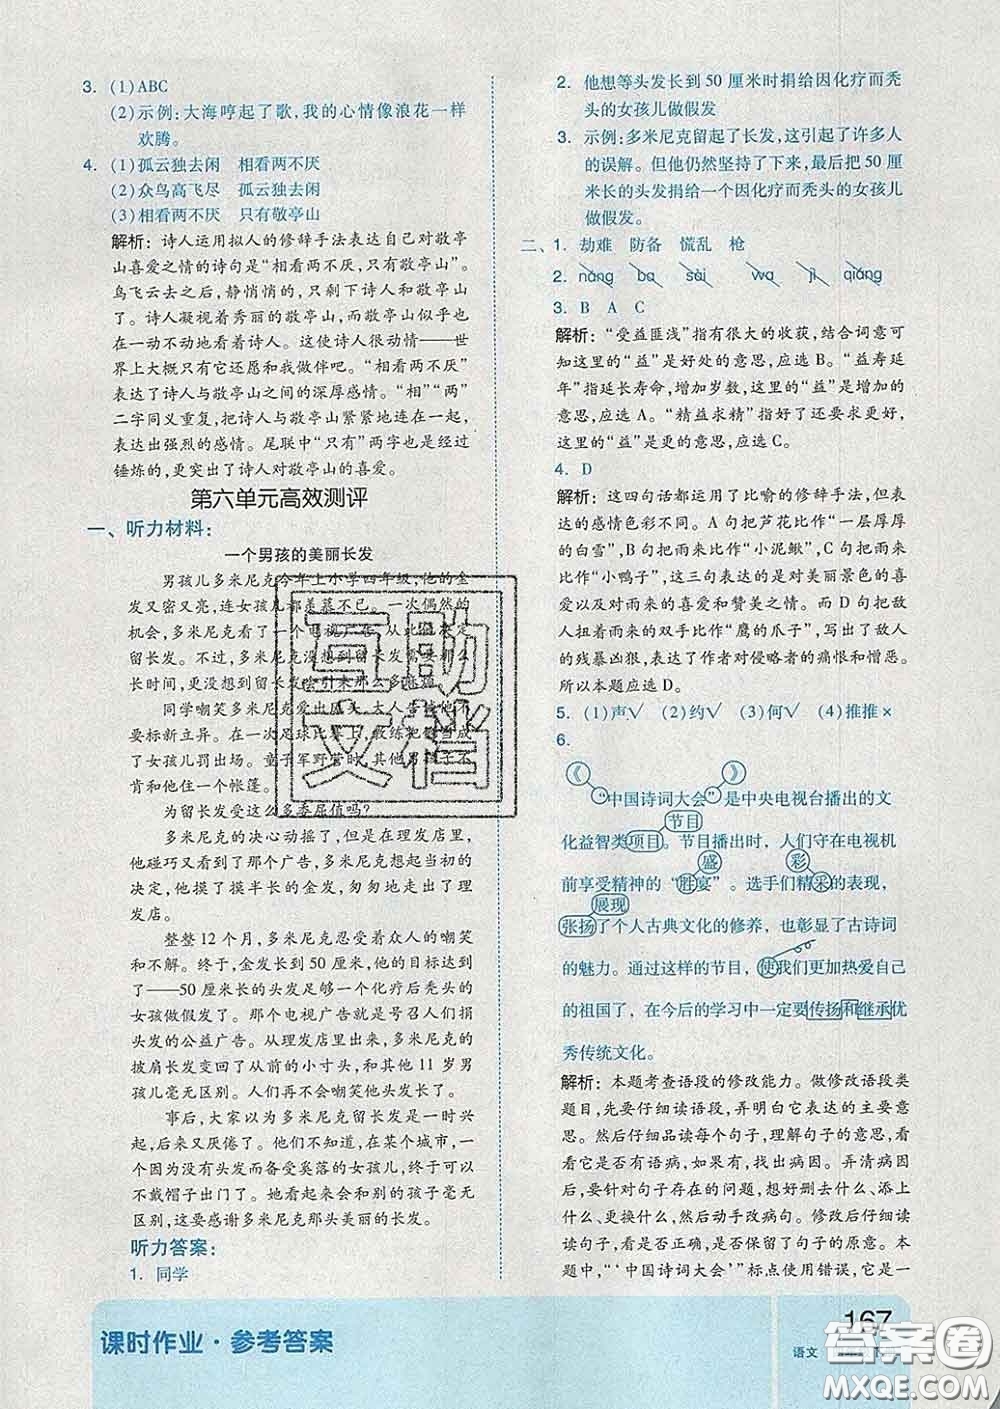 3. (1)ABC
(2)示例:大海哼起了歌,我的心情像浪花一样
欢腾。
4. (1)孤云独去闲 相看两不厌
(2)众鸟高飞尽 孤云独去闲
(3)相看两不厌 只有敬亭山
解析:诗人运用拟人的修辞手法表达自己对敬亭
山喜爱之情的诗句是“相看两不厌,只有敬亭山”。
鸟飞云去之后,静悄悄的,只剩下诗人和敬亭山
了。诗人凝视着秀丽的敬亭山,而敬亭山似乎也
在一动不动地看着诗人。这使诗人很动情——世
界上大概只有它还愿和我做伴吧。“相看两不厌”
表达了诗人与敬亭山之间的深厚感情。“相”“两”
二字同义重复,把诗人与敬亭山紧紧地连在一起,
表达出强烈的感情。尾联中“只有”两字也是经过
锤炼的,更突出了诗人对敬亭山的喜爱。
第六单元高效测评
一、听力材料:
一个男孩的美丽长发
男孩儿多米尼克今年上小学四年级,他的金
发又密又亮,连女孩儿都羡慕不已。一次偶然的
机会,多米尼克看了一个电视广告,从此就决定
留长发。不过,多米尼克没想到留长发需要那么
长时间,更没想到留长发会引来那么多麻烦。
同学嘲笑多米尼克出风头,大人告诫他不
要标新立异。在一次足球比赛上,教练把他当成
了女孩儿罚出场。童子军野营时,其他男孩不
肯和他住一个帐篷。
为留长发受这么多委屈值吗?
多米尼克的决心动摇了,但是在理发店里,
他碰巧又看到了那个广告,多米尼克想起当初的
决定,他摸了摸半长的金发,匆匆地走出了理
发店。
整整 12 个月,多米尼克忍受着众人的嘲笑
和不解。终于,金发长到 50 厘米,他的目标达到
了——50 厘米长的头发足够一个化疗后秃头的
女孩做假发了。那个电视广告就是号召人们捐
头发的公益广告。从理发店里出来,多米尼克的
披肩长发变回了从前的小寸头,和其他 11 岁男
孩儿毫无区别。人们再不会嘲笑他头发长了。
事后,大家以为多米尼克留长发是一时兴
起,后来又厌倦了。他们不知道,在某个城市,
一个因为没有头发而备受奚落的女孩儿,终于可
以不戴帽子出门了。她看起来会和别的孩子毫无
区别,这要感谢多米尼克那头美丽的长发。
听力答案:
1. 同学
2. 他想等头发长到 50 厘米时捐给因化疗而秃
头的女孩儿做假发
3. 示例:多米尼克留起了长发,这引起了许多人
的误解。但他仍然坚持了下来,最后把 50 厘
米长的头发捐给一个因化疗而秃头的女孩儿
做假发。
二、1. 劫难 防备 慌乱 枪
2. náng ba sài wa jì qiáng
3. B A C
解析:“受益匪浅”指有很大的收获,结合词意可
知这里的“益”是好处的意思,应选 B。“益寿延
年”指延长寿命,增加岁数,这里的“益”是增加的
意思,应选 A。“精益求精”指好了还要求更好,
这里的“益”是更的意思,应选 C。
4. D
解析:这四句话都运用了比喻的修辞手法,但表
达的感情色彩不同。A 句把芦花比作“一层厚厚
的白雪”,B 句把雨来比作“小泥鳅”,C 句把雨来
比作“小鸭子”,这三句表达的是对美丽景色的喜
爱以及对雨来的喜爱和赞美之情。而 D 句把敌
人扭着雨来的双手比作“鹰的爪子”,写出了敌人
的残暴凶狠,表达了作者对侵略者的痛恨和憎恶。
所以本题应选 D。
5. (1)声√ (2)约√ (3)何√ (4)推推×
6.
《 》
“中国诗词大会”是中央电视台播出的文
节目
化益智类项目。节目播出时,人们守在电视机
盛 彩
前享受精神的“胜宴”。选手们精采的表现,
展现
张扬了个人古典文化的修养,也彰显了古诗词
的魅力。通过这样的节目,使我们更加热爱自己
的祖国了,在今后的学习中一定要传扬和继承优
秀传统文化。
解析:本题考查语段的修改能力。做修改语段类
题目,先要仔细读语段,弄明白它表达的主要意
思。然后仔细品读每个句子,理解句子的意思,看
看是否有语病,如果有,找出病因。弄清病因
后,要针对句子存在的问题,想好删去什么、添上
什么、更换什么,然后动手改病句。修改后仔细读
读句子,看是否正确,是否保留了句子的原意。本
题中,“‘中国诗词大会’”标点使用错误,它是一
互助
文档
课时作业·参考答案
167
语文
答案圈
MXQE.COM